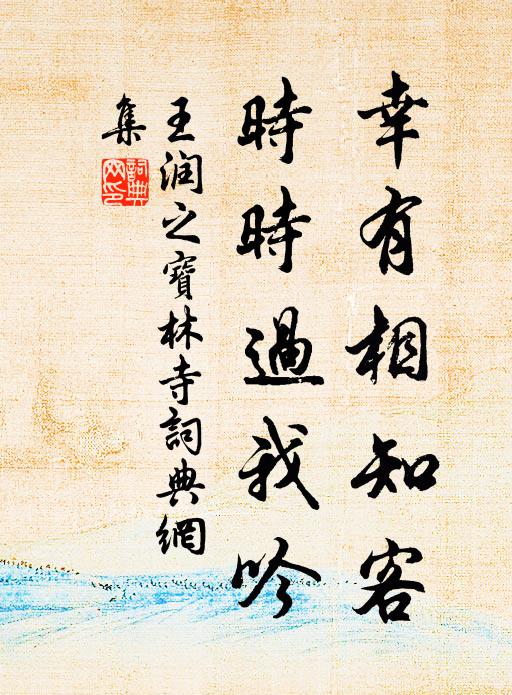 幸有相知客
時時過我吟
王润之寶林寺詞典網
集
詞典
网印